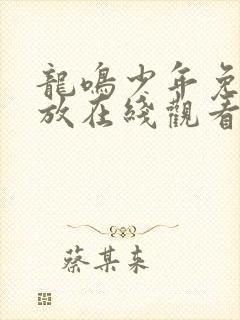 龍鳴少年免
放在綫觀看
蔡某来